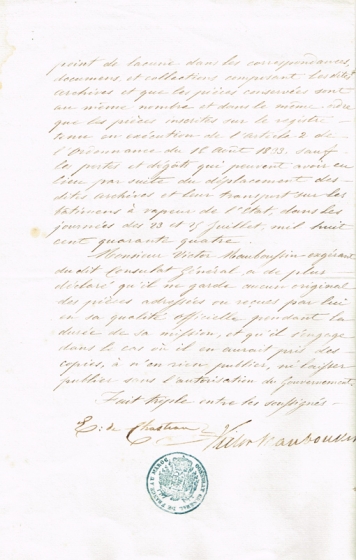 point de lacune dans les correspondances,
documens et collections composant les dites
archives et que les pièces conservées sont
au même nombre et dans le même ordre
que les pièces inscrites sur le registre
tenu en exécution de l'article 2 de
l'Ordonnance du 18 Août 1833. sauf
les pertes et dégâts qui peuvent avoir eu
lieu par suite du déplacement des-
dites archives et leur transport sur les
bâtimens à vapeur de l'État, dans les
journées des 23 et 25 Juillet, mil huit
cent quarante quatre.
Monsieur Victor Mauboussin gérant
du dit Consulat Général a de plus
déclaré qu'il ne garde aucun original
des pièces adressées ou reçues par lui
en sa qualité officielle pendant la
durée de sa mission, et qu'il s'engage
dans le cas où il en aurait pris des
copies, à n'en rien publier, ni laisser
publier sans l'autorisation du Gouvernement.
Fait triple entre les soussignés
E: de Chasteau
Victor Mauboussin
CONSULAT GENERAL DE FRANCE AU MAROC